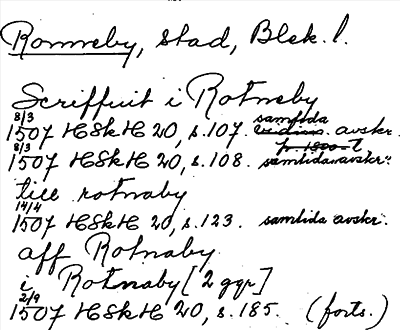 Ronneby, stad, Blek. l.
Scriffuit i Rotneby
8/3 samtida
1507 HSkH 20, s. 107. avskr.
8/3
1507 HSkH 20, s. 108. samtida avskr.
till rotnaby
14/4
1507 HSkH 20, s. 123. samtida avskr.
aff Rotnaby
i Rotnaby [2 ggr]
2/9
1507 HSkH 20, s. 185. (forts.)